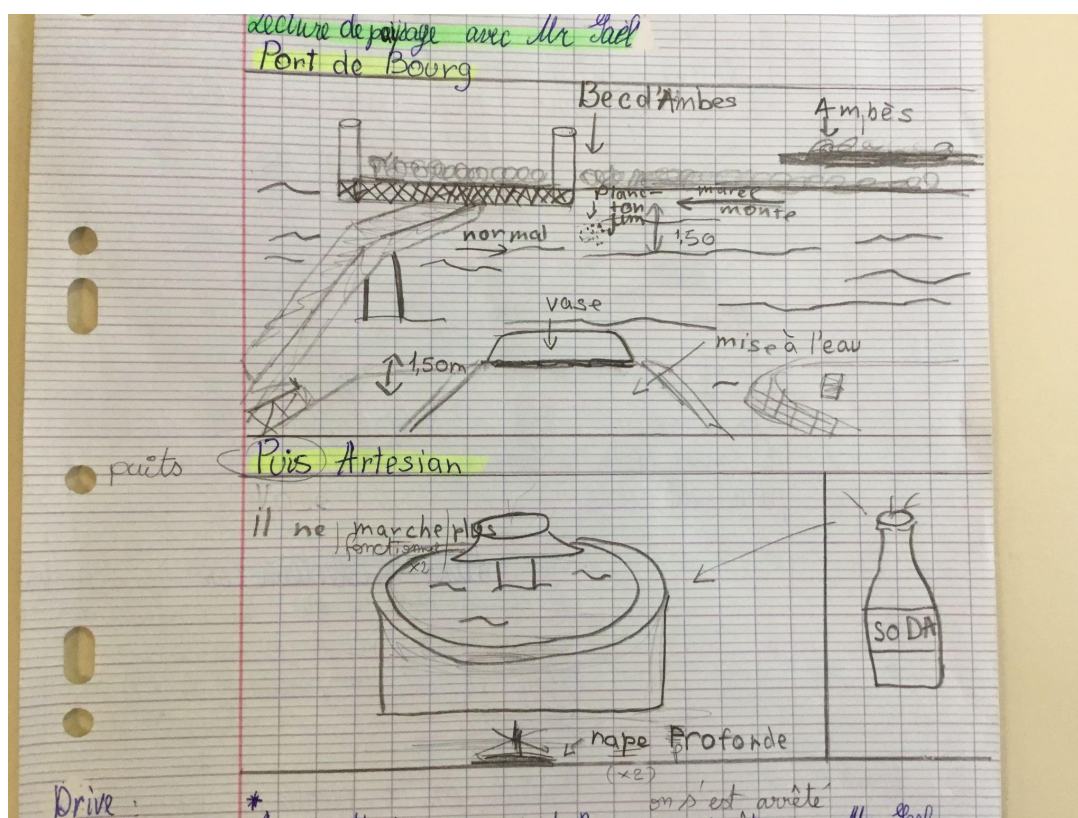 Lecture de paysage avec Mr Gaël
Port de Bourg
Bec d'Ambes
Ambès
planc-
ton
marée
monte
1,50
normal
vase
1,50m
mise à l'eau
puits
Puis Artesian
il ne marche plus
fonctionne
x2
SODA
nape Profonde
p
(x2)
Drive :
*
on s'est arrêté